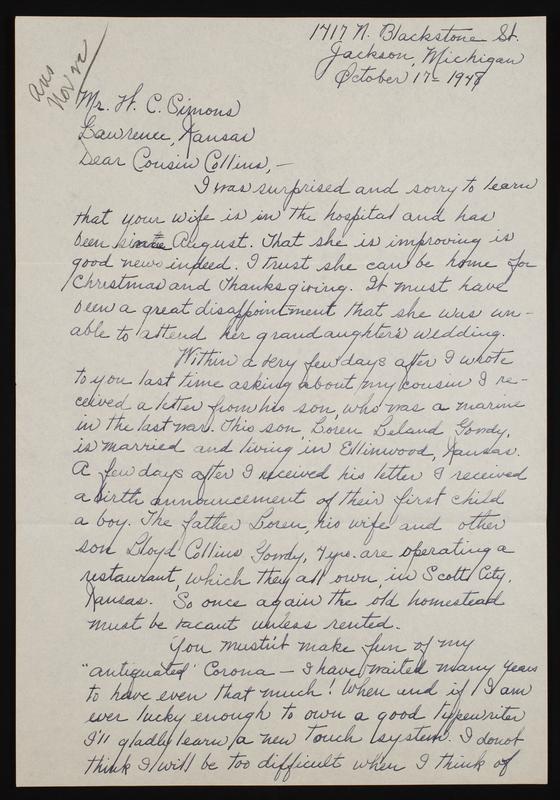 ans
Nov 22
1717 N. Blackstone St.
Jackson, Michigan
October 17- 1948
Mr. W. C. Simons
Lawrence, Kansas
Dear Cousin Collins, —
I was surprised and sorry to learn
that your wife is in the hospital and has
been since August. That she is improving is
good news indeed. I trust she can be home for
Christmas and Thanksgiving. It must have
been a great disappointment that she was un-
able to attend her granddaughter's wedding.
Within a very few days after I wrote
to you last time asking about my cousin I re-
ceived a letter from his son, who was a marine
in the last war. This son, Loren Leland Gowdy,
is married and living in Ellinwood, Kansas.
A few days after I received his letter I received
a birth announcement of their first child
a boy. The father Loren, his wife and other
son Lloyd Collins Gowdy, 4 yrs. are operating a
restaurant, which they all own, in Scott City,
Kansas. So once again the old homestead
must be vacant unless rented.
You mustn't make fun of my
"antiquated" Corona — I have waited many years
to have even that much! When and if I am
ever lucky enough to own a good typewriter
I'll gladly learn a new touch system. I do not
think I will be too difficult when I think of